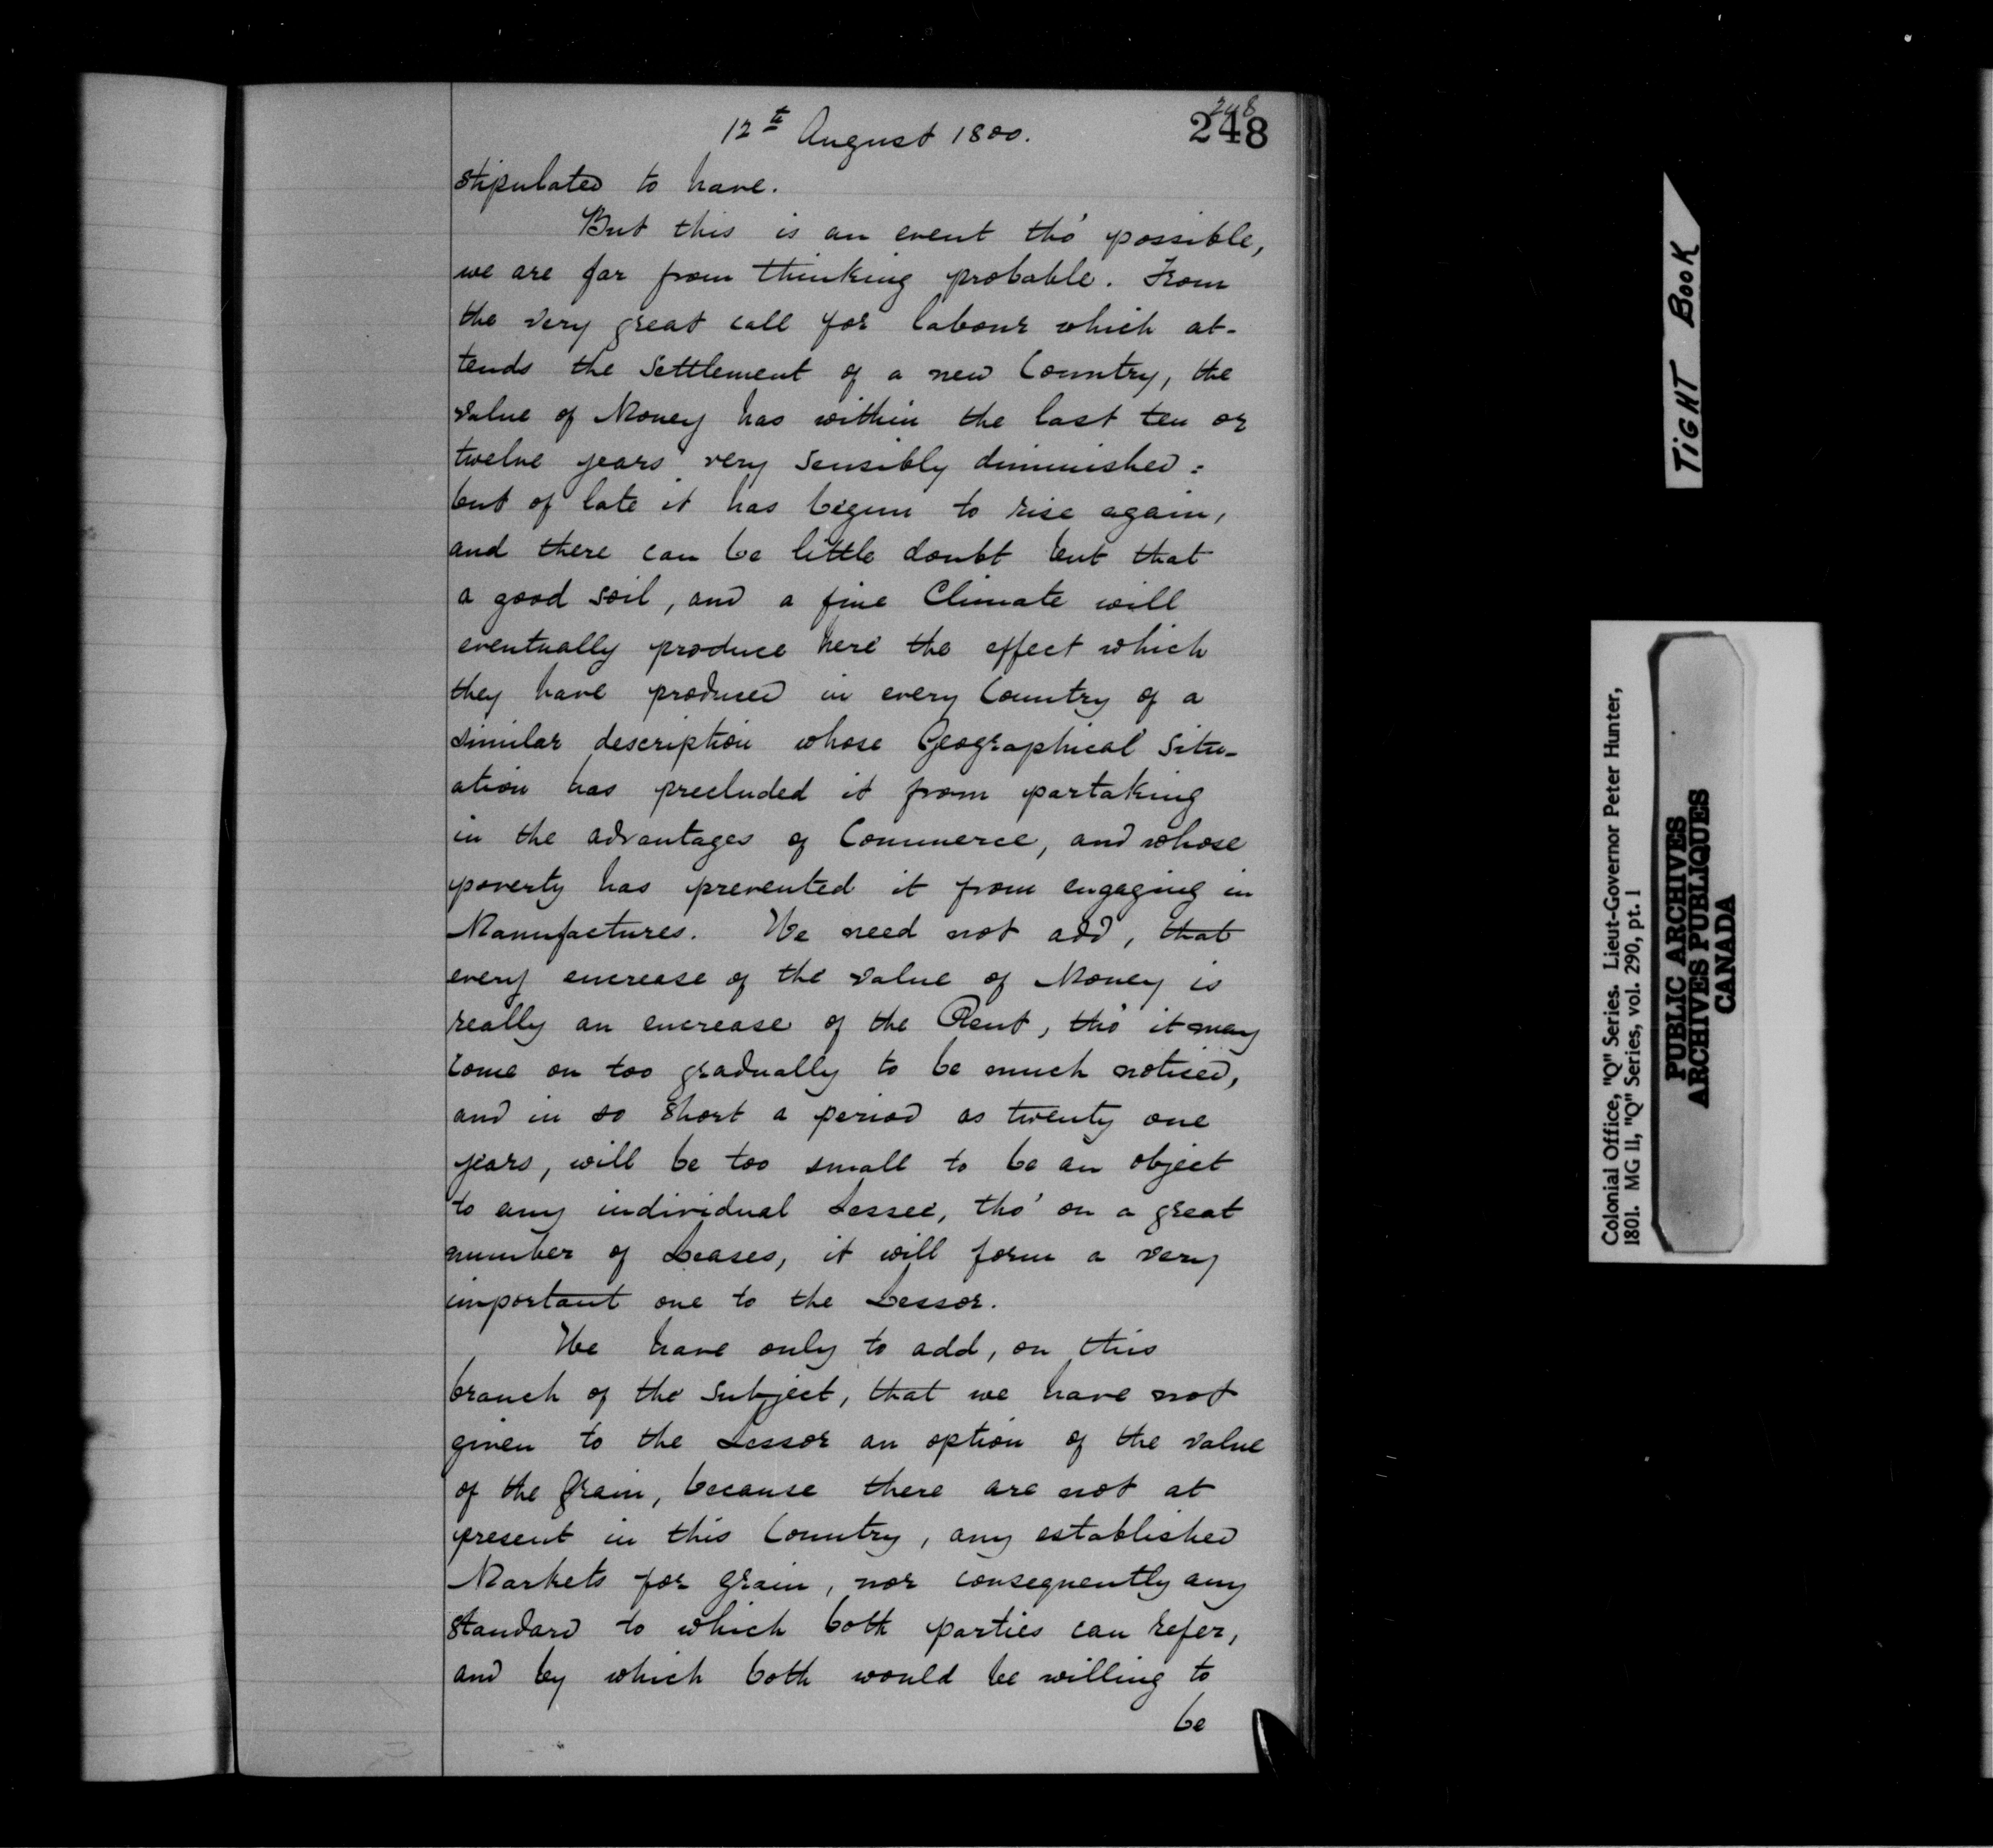 248
12th August 1800.
248
stipulated to have.
But this is an event tho' possible,
we are far from thinking probable. From
the very great call for labour which at-
tends the Settlement of a new Country, the
value of Money has within the last ten or
twelve years very sensibly diminished:
but of late it has begun to rise again,
and there can be little doubt but that
a good soil, and a fine Climate will
eventually produce here the effect which
they have produced in every Country of a
similar description whose Geographical Situ-
ation has precluded it from partaking
in the advantages of Commerce, and whose
poverty has prevented it from engaging in
Manufactures. We need not add, that
every encrease of the value of Money is
really an encrease of the Rent, tho' it may
come on too gradually to be much noticed,
and in so short a period as twenty one
years, will be too small to be an object
to any individual Lessee, tho' on a great
number of Leases, it will form a very
important one to the Lessor.
We have only to add, on this
branch of the Subject, that we have not
given to the Lessor an option of the value
of the Grain, because there are not at
present in this Country, any established
Markets for Grain, nor consequently any
standard to which both parties can refer,
and by which both would be willing to
be
TIGHT BOOK
Colonial Office, "Q" Series. Lieut-Governor Peter Hunter,
1801. MG 11, "Q" Series, vol. 290, pt. 1
PUBLIC ARCHIVES
ARCHIVES PUBLIQUES
CANADA